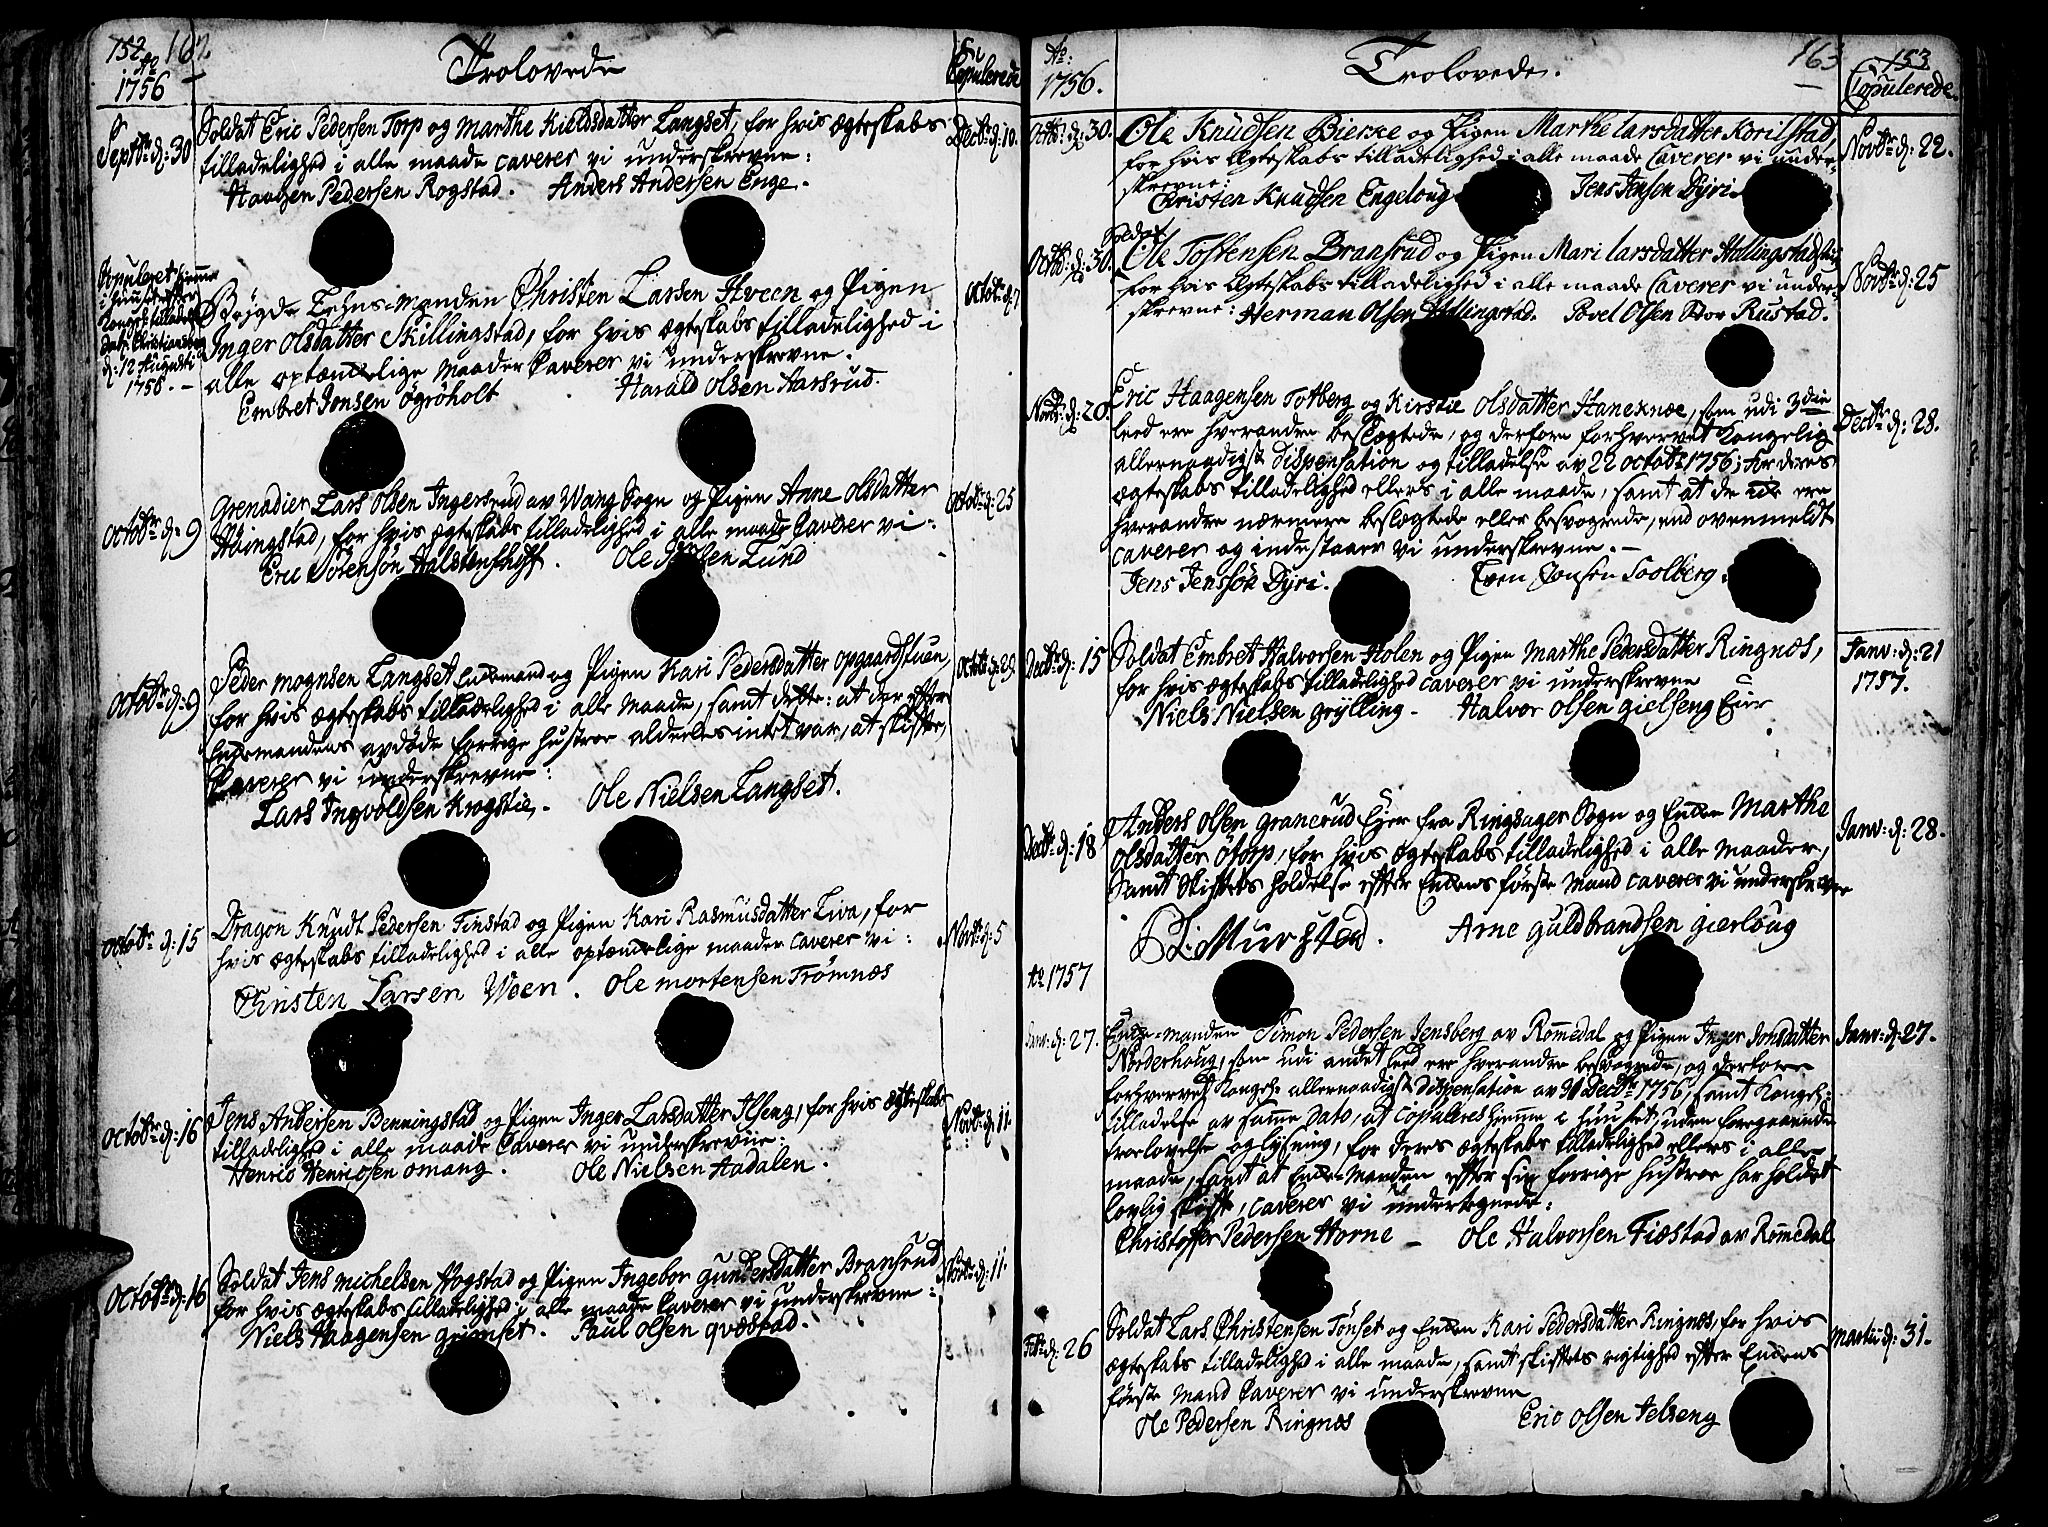 152 162
Aō 1756
Trolovede
Copulerede
Septbr d: 30
Soldat Eric Pedersen Torp og Marthe Kieldsdatter Langset, for hvis ægteskabs
tilladelighed i alle maade caverer vi underskrevne:
Decbr d: 10.
Haagen Pedersen Rogstad. Anders Andersen Enge.
Copuleret hiemme
i huuset efter
Kongel: tilladelse
Dat: Christiansborg
d: 12 Augusti
1758.
Bøigde Lehns-manden Christen Larsen Hveen og Pigen
Inger Olsdatter Skillingstad, for hvis ægteskabs tilladelighed i
alle optænkelige maader Caverer vi underskrevne.
Octobr d: 7
Embret Jonsen Øgröholt Harald Olsen Aarsrud.
Octobr d: 9
Grenadier Lars Olsen Ingersrud av Wang Sogn og Pigen Anne Olsdatter
Hvingstad, for hvis ægteskabs tilladelighed i alle maade Caverer vi:
Octobr d: 25
Eric Sørensøn Halstenshoff. Ole Olsen Lund
Octobr d: 9
Peder Mognsen Langset Enkemand og Pigen Kari Pedersdatter Opgaardstuen,
for hvis ægteskabs tilladelighed i alle maade, samt dette: at der efter
Enkemandens avdøde forrige hustroe aldeles intet var, at skifte,
Caverer vi underskrevne:
Octobr d: 29
Lars Ingvoldsen Krogstie. Ole Nielsen Langset.
Octobr d: 15
Dragon Knudt Pedersen Finstad og Pigen Kari Rasmusdatter Liva, for
hvis ægteskabs tilladelighed i alle optænkelige maader caverer vi:
Novbr d: 5
Christen Larsen Woen. Ole Mortensen Trömnæs
Octobr d: 16
Jens Andersen Benningstad og Pigen Inger Larsdatter Ilseng, for hvis ægteskabs
tilladelighed i alle maade Caverer vi underskrevne:
Novbr d: 11.
Henric Henricsen Omang. Ole Nielsen Aadalen.
Octobr d: 16
Soldat Jens Michelsen Hogstad og Pigen Ingebor Gundersdatter Bransrud
for hvis ægteskabs tilladelighed i alle maade Caverer vi underskrevne:
Novbr d: 11.
Niels Haagensen Grimset. Paul Olsen Qvæstad.
Aō: 1756.
Trolovede.
163 153
Copulerede.
Octbr: d: 30.
Ole Knudsen Bierke og Pigen Marthe Larsdatter Korilstad,
for hvis Ægteskabs tilladelighed i alle maade Caverer vi under-
skrevne:
Novbr d: 22.
Christen Knudsen Engeloug Jens Jensen Dyri
Octbr: d: 30.
Soldat
Ole Tostensen Bransrud og Pigen Mari Larsdatter Hellingstad
for hvis Ægteskabs tilladelighed i alle maade Caverer vi under-
skrevne: Herman Olsen Hellingstad. Povel Olsen Stor Rustad.
Novbr d: 25
Novbr: d: 20.
Eric Haagensen Totberg og Kirstie Olsdatter Haneknæ, som udi 3die
leed ere hverandre beslægtede, og derfore forhvervet Kongelig
allernaadigst Dispensation og tilladelse av 22 octobr 1756; for deres
ægteskabs tilladelighed ellers i alle maade, samt at de ej ere
hverandre nærmere beslægtede eller besvogrede, end ovenmeldt
caverer og indestaaer vi underskrevne.
Decbr d: 28.
Jens Jenssøn Dyri. Even Jonsen Soolberg.
Decbr d: 15
Soldat Embret Halvorsen Holen og Pigen Marthe Pedersdatter Ringnæs,
for hvis ægteskabs tilladelighed caverer vi underskrevne
Janv: d: 21
1757.
Niels Nielsen Grylling. Halvor Olsen Gielseng Eier
Decbr d: 18
Anders Olsen Granerud Eier fra Ringsager Sogn og Enken Marthe
Olsdatter Otorp, for hvis ægteskabs tilladelighed i alle maader,
Samt Skiftets holdelse efter Enkens første Mand caverer vi underskrevne
Janv: d: 28.
P: Murstad. Arne Guldbrandsen Gierloug
Aō 1757
Janv: d: 27.
Enke-manden Simon Pedersen Jensberg av Romedal og Pigen Inger Jonsdatter
Norderhoug, som udi andet leed ere hverandre besvogrede, og derfore
forhvervet Kongel: allernaadigst Dispensation av 31 Decbr 1756, samt Kongel:
tilladelse av samme Dato, at copuleres hiemme i huuset, uden foregaaende
troelovelse og lysning, for deres ægteskabs tilladelighed ellers i alle
maade, samt at Enke-Manden efter sin forrige hustroe har holdet
lovlig skifte, caverer vi undertegnede:
Janv: d: 27.
Christoffer Pedersen Horne - Ole Halvorsen Fiæstad av Romedal
Febr: d: 26
Soldat Lars Christensen Tönset og Enken Kari Pedersdatter Ringnæs, for hvis
ægteskabs tilladelighed i alle maade, samt skiftets rigtighed efter Enkens
første Mand Caverer vi underskrevne
Martii d: 31.
Ole Pedersen Ringnæs Eric Olsen Jelseng